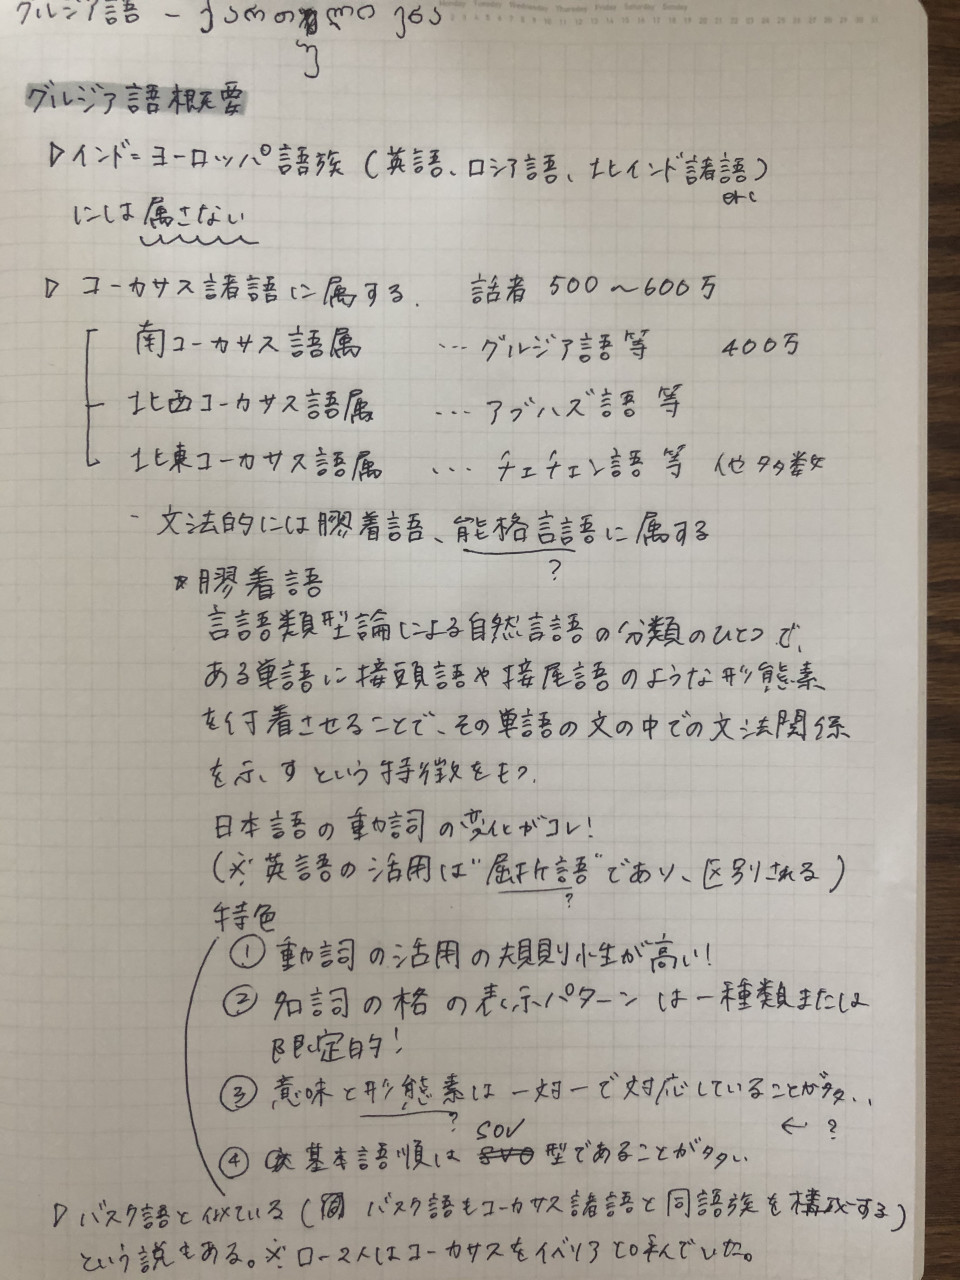 グルジア語 - ქართული ენა
グルジア語概要
▷インド=ヨーロッパ語族(英語、ロシア語、北インド諸語)
etc
には属さない
▷コーカサス諸語に属する. 話者 500~600万
南コーカサス語属 …グルジア語等 400万
北西コーカサス語属 …アブハズ語等
北東コーカサス語属 …チェチェン語等 他多数
- 文法的には膠着語、能格言語に属する
?
*膠着語
言語類型論による自然言語の分類のひとつで、
ある単語に接頭語や接尾語のような形態素
を付着させることで、その単語の文の中での文法関係
を示すという特徴をもつ.
日本語の動詞の変化がコレ!
(※英語の活用は"屈折語"であり、区別される)
?
特色
① 動詞の活用の規則性が高い!
② 名詞の格の表示パターンは一種類または
限定的!
③ 意味と形態素は一対一で対応していることが多い.
? ← ?
SOV
④ 基本語順は SVO 型であることが多い
▷バスク語と似ている(バスク語もコーカサス諸語と同語族を構成する)
という説もある。※ローマ人はコーカサスをイベリアと呼んでいた。